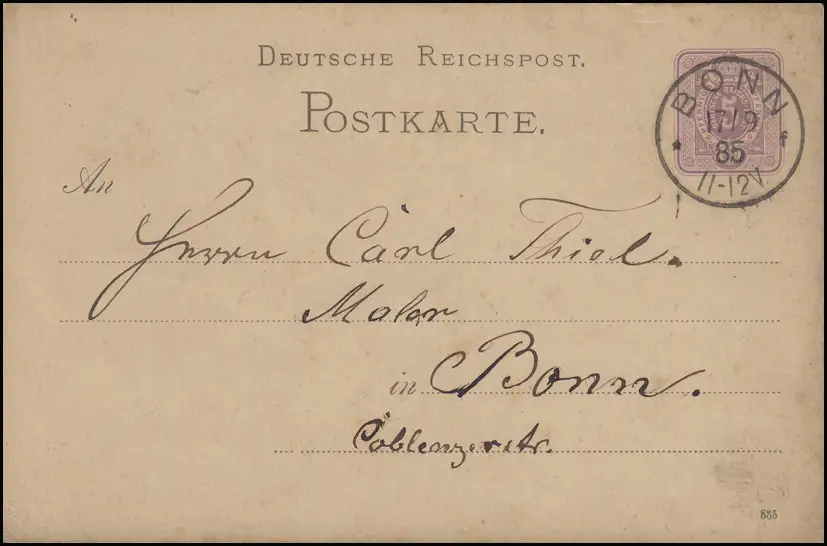 DEUTSCHE REICHSPOST.
POSTKARTE.
BONN
17/9
85
* f
11-12V.
An
Herrn Carl Thiel.
Maler
in Bonn.
Coblenzerstr.
835